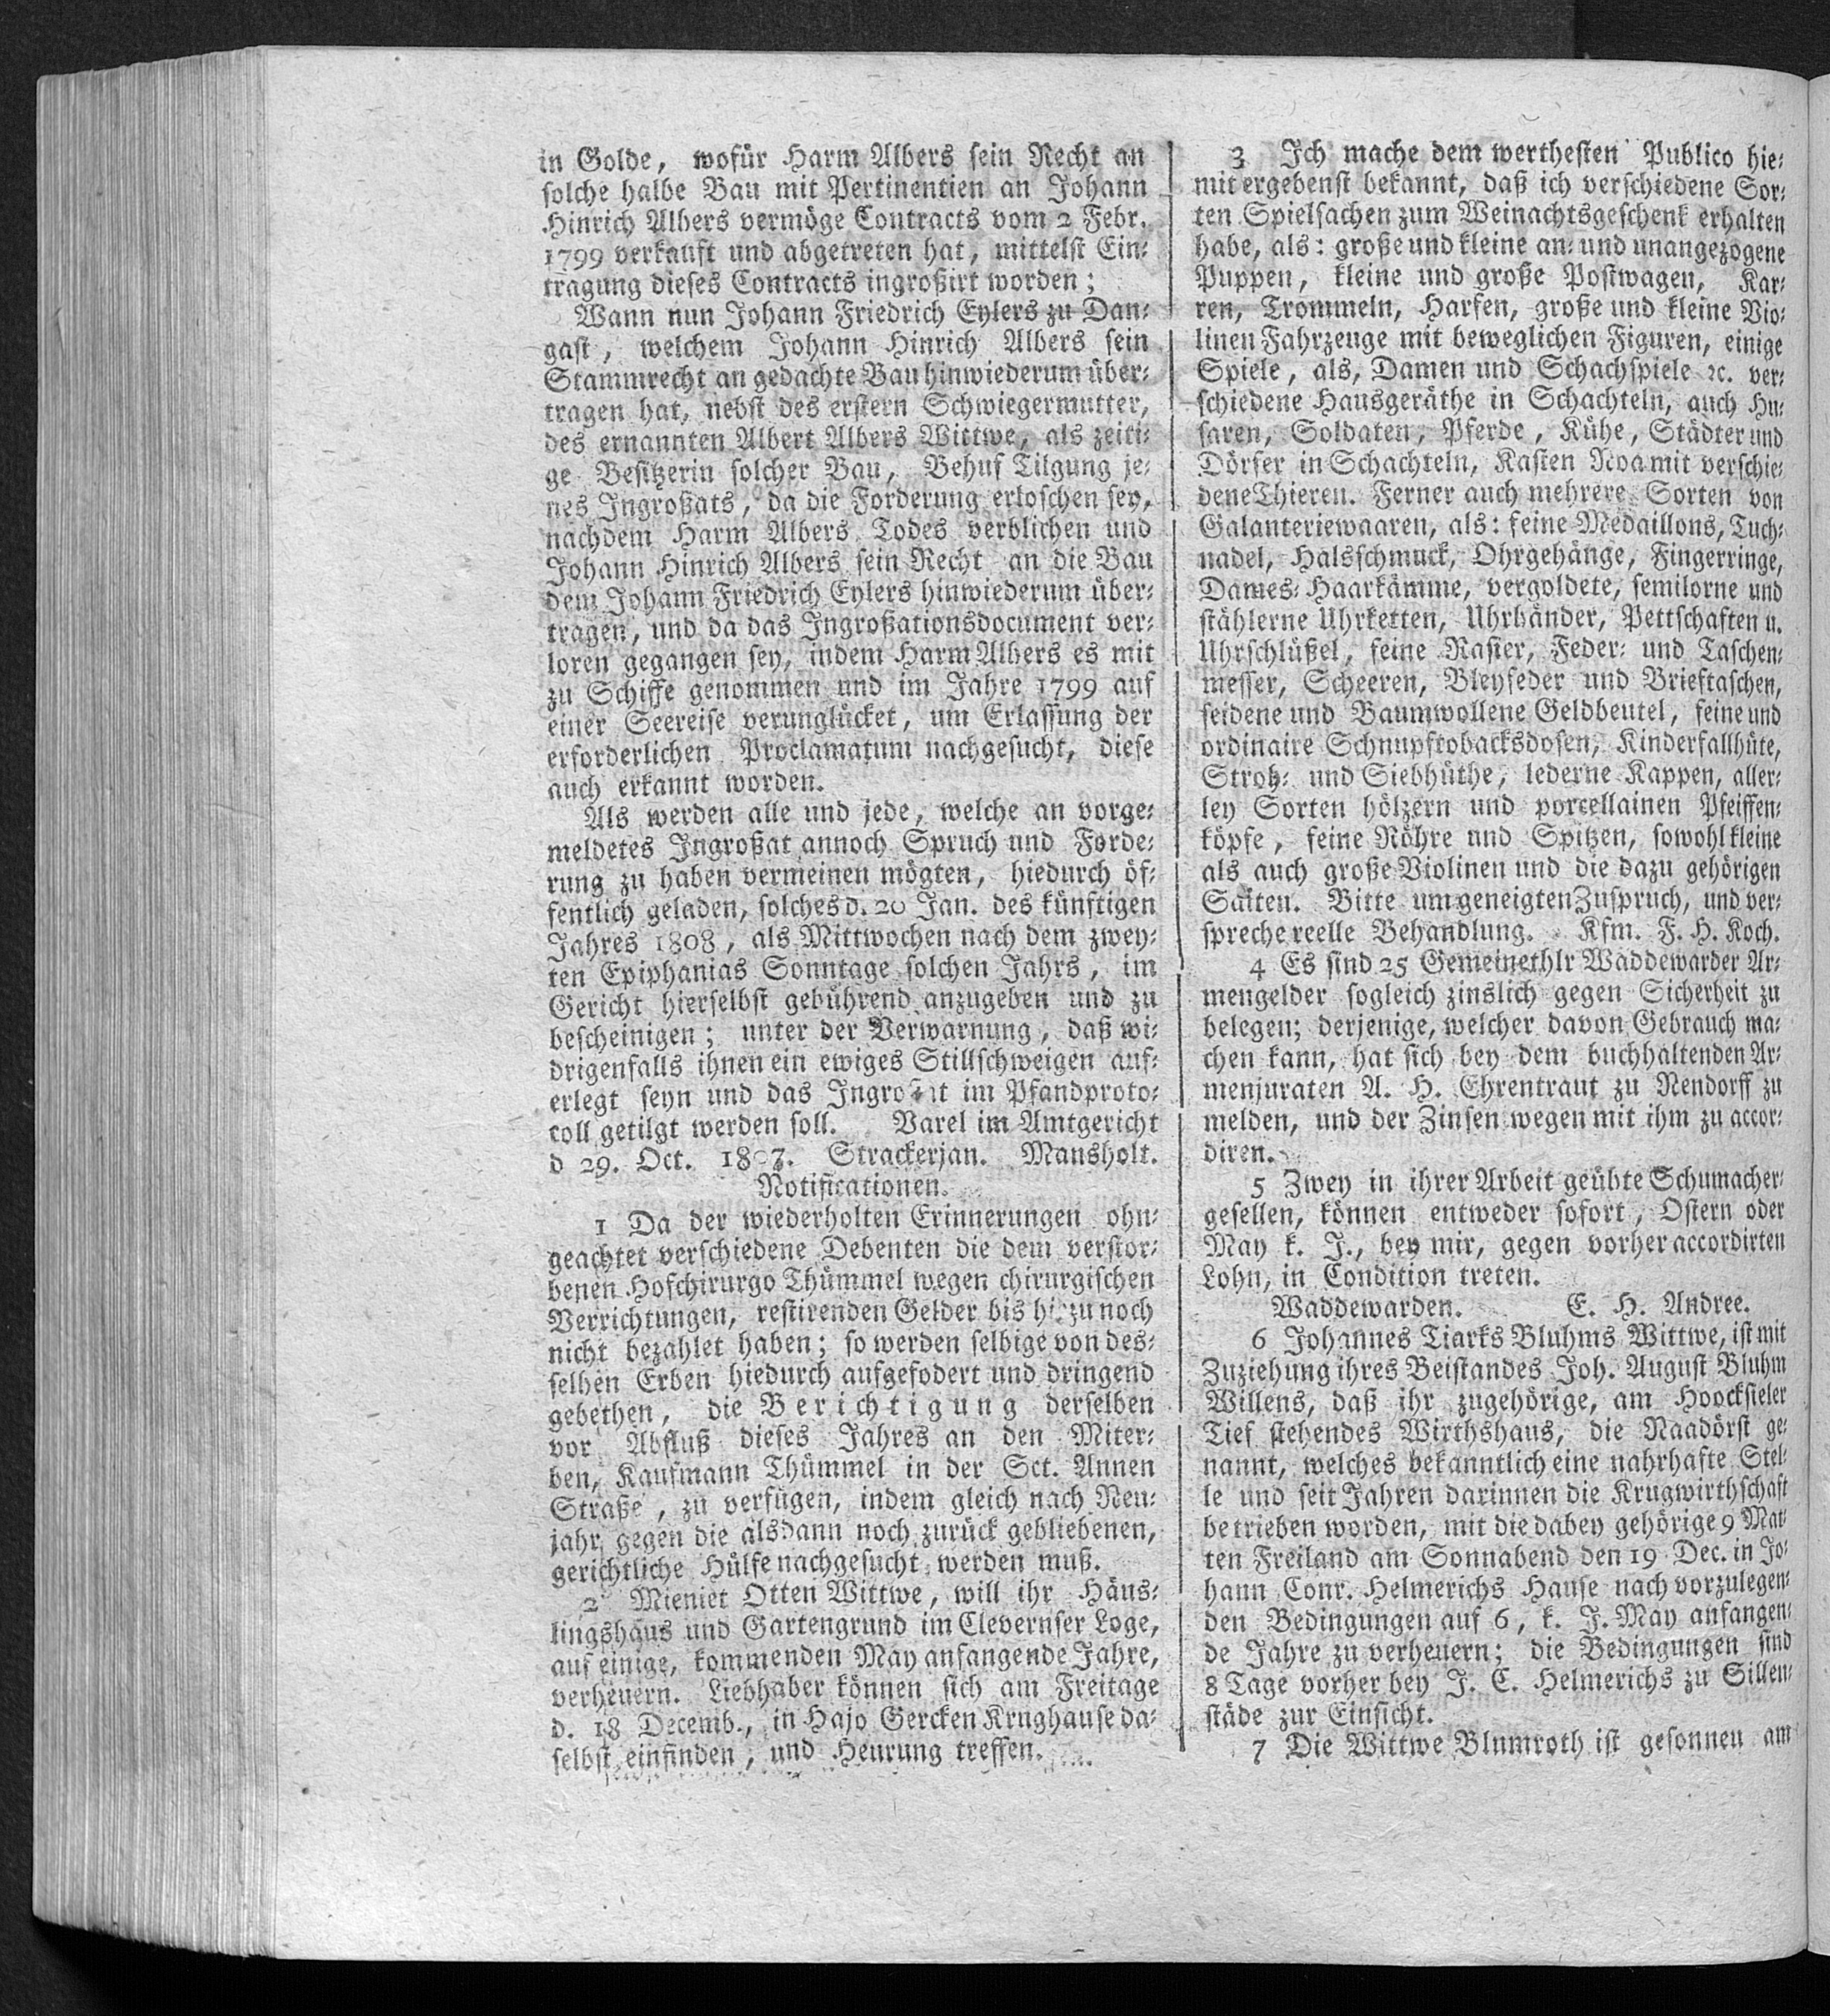 in Golde, wofür Harm Albers sein Recht an
solche halbe Bau mit Pertinentien an Johann
Hinrich Albers vermöge Contracts vom 2 Febr.
1799 verkauft und abgetreten hat, mittelst Ein-
tragung dieses Contracts ingroßirt worden;
Wann nun Johann Friedrich Eylers zu Dan-
gast, welchem Johann Hinrich Albers sein
Stammrecht an gedachte Bau hinwiederum über-
tragen hat, nebst des erstern Schwiegermutter,
des ernannten Albert Albers Wittwe, als zeiti-
ge Besitzerin solcher Bau, Behuf Tilgung je-
nes Ingroßats, da die Forderung erloschen sey,
nachdem Harm Albers Todes verblichen und
Johann Hinrich Albers sein Recht an die Bau
dem Johann Friedrich Eylers hinwiederum über-
tragen, und da das Ingroßationsdocument ver-
loren gegangen sey, indem Harm Albers es mit
zu Schiffe genommen und im Jahre 1799 auf
einer Seereise verunglücket, um Erlassung der
erforderlichen Proclamatum nachgesucht, diese
auch erkannt worden.
Als werden alle und jede, welche an vorge-
meldetes Ingroßat annoch Spruch und Forde-
rung zu haben vermeinen mögten, hiedurch öf-
fentlich geladen, solches d. 20 Jan. des künftigen
Jahres 1808, als Mittwochen nach dem zwey-
ten Epiphanias Sonntage solchen Jahrs, im
Gericht hierselbst gebührend anzugeben und zu
bescheinigen; unter der Verwarnung, daß wi-
drigenfalls ihnen ein ewiges Stillschweigen auf-
erlegt seyn und das Ingroßat im Pfandproto-
coll getilgt werden soll. Varel im Amtgericht
d 29. Oct. 1807. Strackerjan. Mansholt.
Notificationen.
1 Da der wiederholten Erinnerungen ohn-
geachtet verschiedene Debenten die dem verstor-
benen Hofchirurgo Thümmel wegen chirurgischen
Verrichtungen, restirenden Gelder bis hiezu noch
nicht bezahlet haben; so werden selbige von des-
selben Erben hiedurch aufgefodert und dringend
gebethen, die Berichtigung derselben
vor Abfluß dieses Jahres an den Miter-
ben, Kaufmann Thümmel in der Sct. Annen
Straße, zu verfügen, indem gleich nach Neu-
jahr gegen die alsdann noch zurück gebliebenen,
gerichtliche Hülfe nachgesucht werden muß.
2 Mieniet Otten Wittwe, will ihr Häus-
lingshaus und Gartengrund im Clevernser Loge,
auf einige, kommenden May anfangende Jahre,
verheuern. Liebhaber können sich am Freitage
d. 18 Decemb., in Hajo Gercken Krughause da-
selbst einfinden, und Heurung treffen.
3 Ich mache dem werthesten Publico hie-
mit ergebenst bekannt, daß ich verschiedene Sor-
ten Spielsachen zum Weinachtsgeschenk erhalten
habe, als: große und kleine an- und unangezogene
Puppen, kleine und große Postwagen, Kar-
ren, Trommeln, Harfen, große und kleine Vio-
linen Fahrzeuge mit beweglichen Figuren, einige
Spiele, als, Damen und Schachspiele ꝛc. ver-
schiedene Hausgeräthe in Schachteln, auch Hu-
saren, Soldaten, Pferde, Kühe, Städter und
Dörfer in Schachteln, Kasten Noa mit verschie-
dene Thieren. Ferner auch mehrere Sorten von
Galanteriewaaren, als: feine Medaillons, Tuch-
nadel, Halsschmuck, Ohrgehänge, Fingerringe,
Dames-Haarkämme, vergoldete, semilorne und
stählerne Uhrketten, Uhrbänder, Pettschaften u.
Uhrschlüßel, feine Rasier, Feder- und Taschen-
messer, Scheeren, Bleyfeder und Brieftaschen,
seidene und Baumwollene Geldbeutel, feine und
ordinaire Schnupftobacksdosen, Kinderfallhüte,
Stroh- und Siebhüthe, lederne Kappen, aller-
ley Sorten hölzern und porcellainen Pfeiffen-
köpfe, feine Röhre und Spitzen, sowohl kleine
als auch große Violinen und die dazu gehörigen
Saiten. Bitte um geneigten Zuspruch, und ver-
spreche reelle Behandlung. Kfm. F. H. Koch.
4 Es sind 25 Gemeinethlr Waddewarder Ar-
mengelder sogleich zinslich gegen Sicherheit zu
belegen; derjenige, welcher davon Gebrauch ma-
chen kann, hat sich bey dem buchhaltenden Ar-
menjuraten A. H. Ehrentraut zu Nendorff zu
melden, und der Zinsen wegen mit ihm zu accor-
diren.
5 Zwey in ihrer Arbeit geübte Schumacher-
gesellen, können entweder sofort, Ostern oder
May k. J., bey mir, gegen vorher accordirten
Lohn, in Condition treten.
Waddewarden. E. H. Andree.
6 Johannes Tiarks Bluhms Wittwe, ist mit
Zuziehung ihres Beistandes Joh. August Bluhm
Willens, daß ihr zugehörige, am Hoocksieler
Tief stehendes Wirthshaus, die Naadörst ge-
nannt, welches bekanntlich eine nahrhafte Stel-
le und seit Jahren darinnen die Krugwirthschaft
betrieben worden, mit die dabey gehörige 9 Mat-
ten Freiland am Sonnabend den 19 Dec. in Jo-
hann Conr. Helmerichs Hause nach vorzulegen-
den Bedingungen auf 6, k. J. May anfangen-
de Jahre zu verheuern; die Bedingungen sind
8 Tage vorher bey J. C. Helmerichs zu Sillen-
städe zur Einsicht.
7 Die Wittwe Blumroth ist gesonnen am